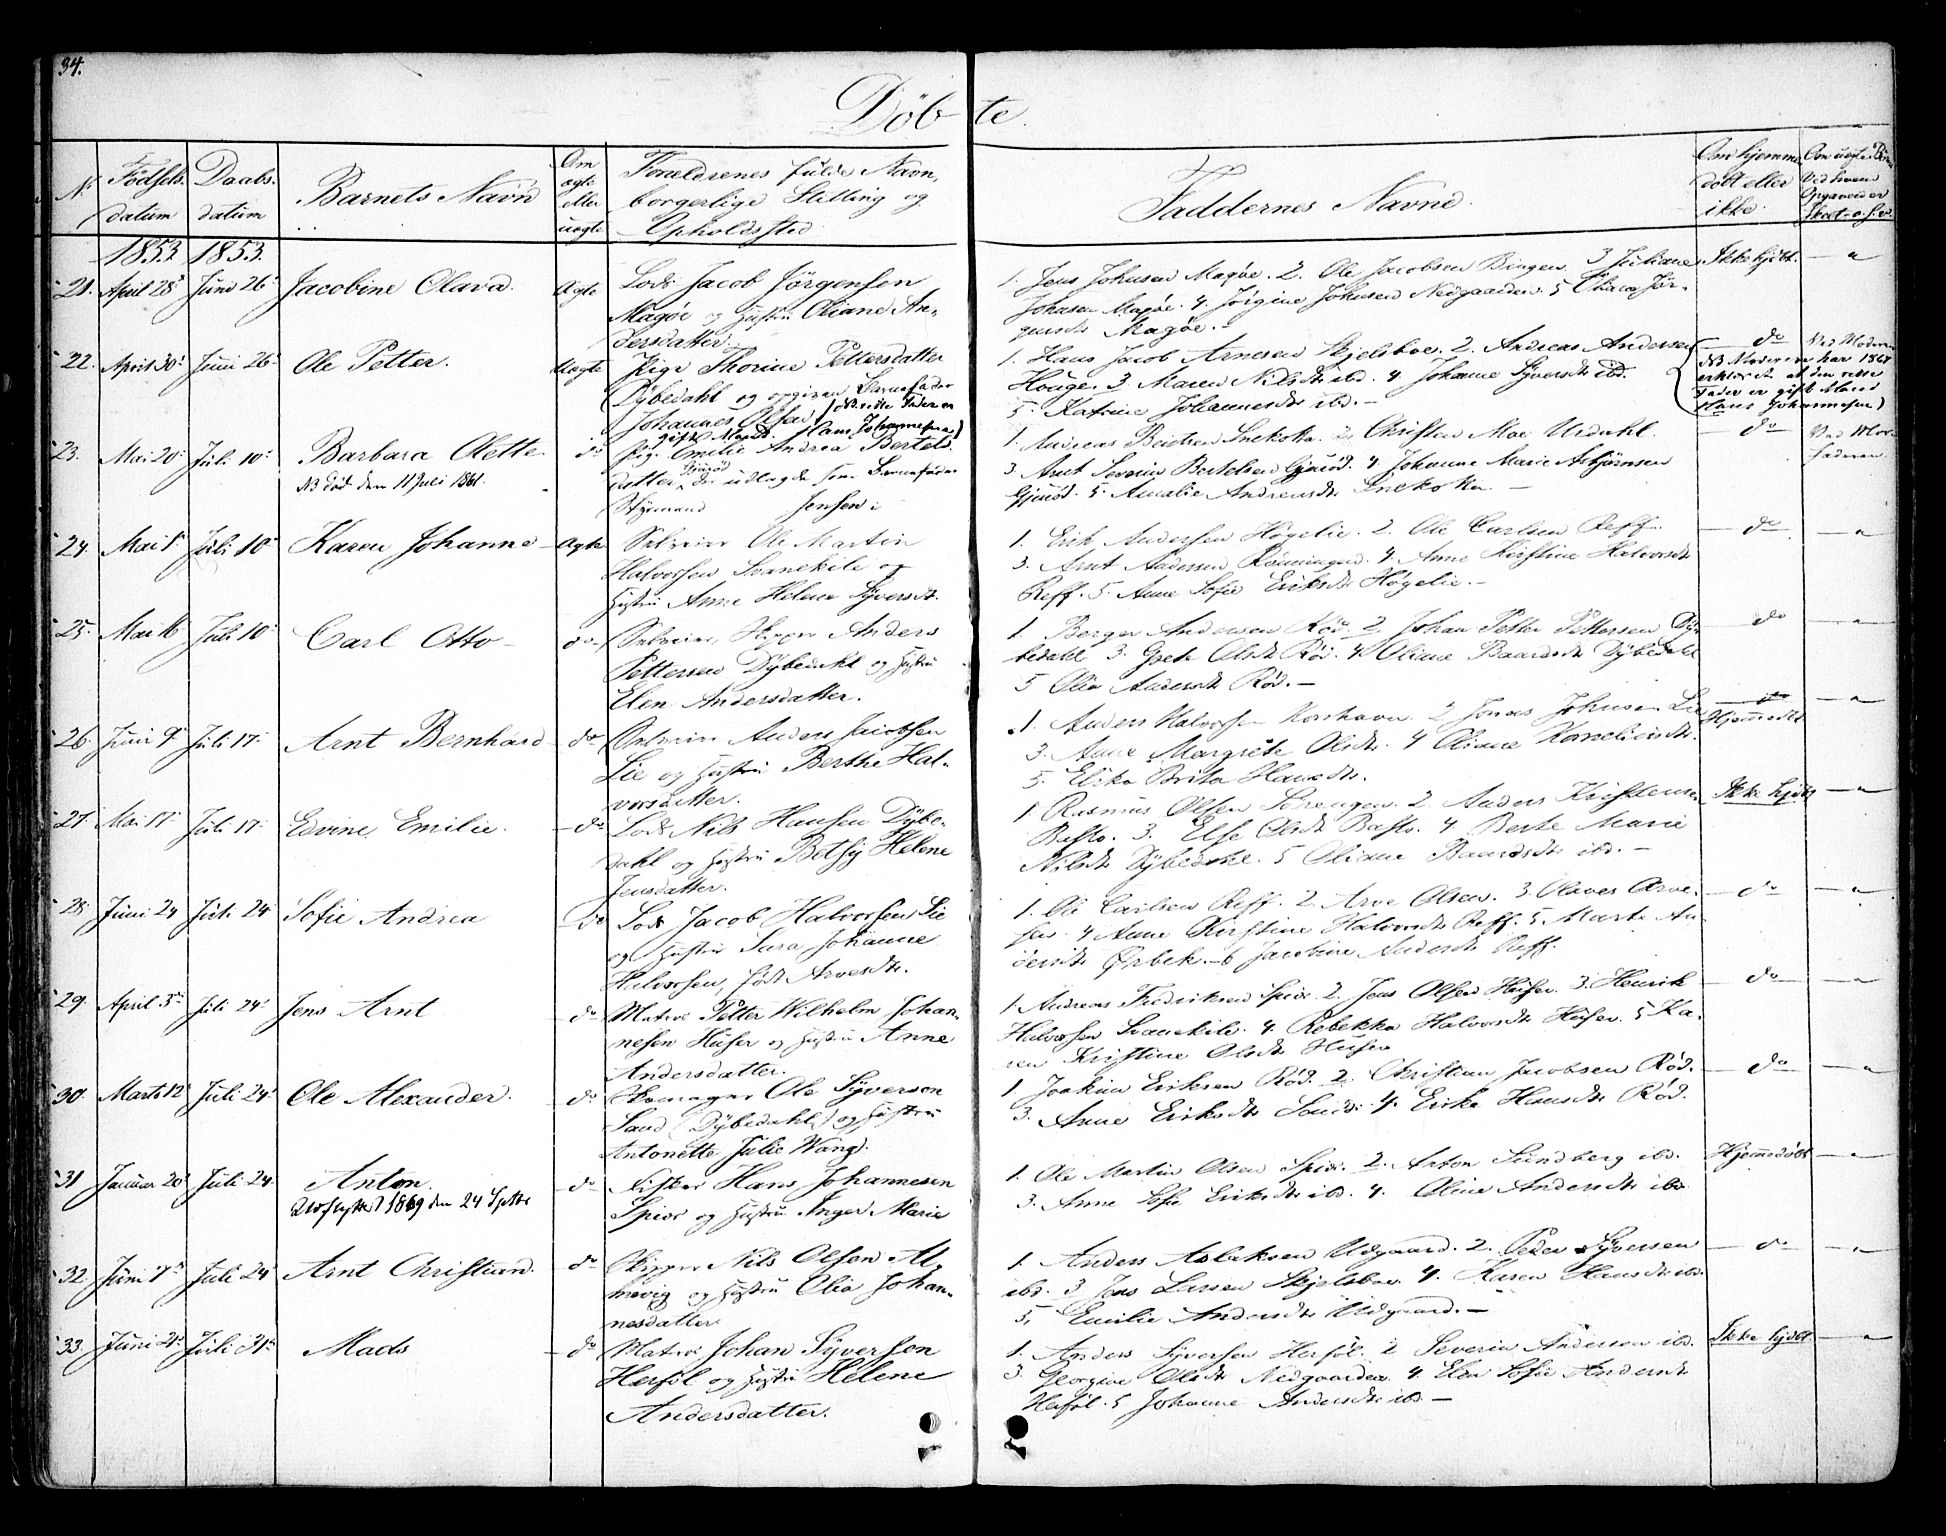 34.
Døbte.
Nr.
Fødsels-
datum
Daabs-
datum
Barnets Navn
Om
ægte
eller
uægte
Forældrenes fulde Navn,
borgerlige Stilling og
Opholdssted
Faddernes Navne.
Om hjemme
døbt eller
ikke.
1853. 1853.
21. April 28 Juni 26 Jacobine Olava. Ægte
Lods Jacob Jørgensen
Magøe og Hustru Oliane An-
dersdatter.
1. Jens Johnsen Magøe. 2. Ole Jacobsen Bingen. 3 Juliane
Johnsen Magøe. 4. Jørgine Johnsen Nedgaarden. 5 Oliana Jør-
gensdt Magøe.
Ikke hjdbt.
22. April 30 Juni 26 Ole Petter. Uægte
Pige Thorine Pettersdatter
Dybedahl og opgiven Barnefader
Johannes Olsen (NB rette Fader er
gift Mand Hans Johannesen)
1. Hans Jacob Arnesen Skjelsboe. 2. Andreas Andersen
Houge. 3. Maren Nilsdt ibd. 4 Johanne Syversdt ibd.
5. Katrine Johannesdt ibd. —
do Ved Moderen
NB Moderen har 1867
erklæret at den rette
Fader er gift Mand
Hans Johannesen
23. Mai 20 Juli 10 Barbara Olette. do
NB død den 11 Juli 1861.
Pig. Emilie Andrea Bertels-
datter Gjuød, der udlagde som Barnefader
Styrmand Jensen
1. Andreas Bentsen Snekoka. 2. Christen Moe Urdahl.
3. Arnt Severin Bertelsen Gjuød. 4 Johanne Marie Asbjørnsen
Gjuød. 5. Amalie Andreasdt Snekoka. —
do Ved Mor-
faderen.
24. Mai 1 Juli 10 Karen Johanne Ægte
Selveier Ole Martin
Halvorsen Svanekile og
Hustru Anne Helene Syversdt.
1. Erik Andersen Høgelie. 2. Ole Carlsen Reff.
3. Arnt Andersen Rønningen. 4 Anne Kirstine Halvorsdt
Reff. 5. Anne Sofie Eriksdt Høgelie. —
do
25. Mai 16 Juli 10 Carl Otto do
Selveier, Skipper Anders
Pettersen Dybedahl og Hustru
Elen Andersdatter.
1. Berger Andersen Rød 2. Johan Petter Pettersen Dy-
bedahl 3. Grete Olsdt Rød. 4 Oliane Baardsdt Dybedahl
5 Olia Andersdt Rød. —
do
26. Juni 9 Juli 17 Arnt Bernhard do
Selveier Anders Jacobsen
Lie og Hustru Berthe Hal-
vorsdatter.
1. Anders Halvorsen Korshavn. 2 Jonas Johnsen Lie
3. Anne Margrete Olsdt. 4 Oliane Korneliusdt.
5. Elika Brita Hansdt.
Hjemmedbt
27. Mai 17 Juli 17 Edvine Emilie. do
Lods Nils Hansen Dybe-
dahl og Hustru Betsy Helene
Jensdatter.
1. Rasmus Olsen Sørengen. 2. Anders Kristensen
Basto. 3. Else Olsdt Basto. 4 Berte Marie
Nilsdt Dybedahl. 5 Oliane Baardsdt ibd. —
Ikke hjdbt
28. Juni 24 Juli 24 Sofie Andrea do
Lods Jacob Halvorsen Lie
og Hustru Sara Johanne
Halvorsen, født Arvesdt.
1. Ole Carlsen Reff. 2. Arve Olsen. 3. Olaves Arve-
sen. 4 Anne Kirstine Halvorsdt Reff. 5. Marte An-
dersdt Ørbek. 6 Jacobine Andersdt Reff.
do
29. April 3 Juli 24 Jens Arnt do
Matros Petter Wilhelm Johan-
nesen Huser og Hustru Anne
Andersdatter.
1. Andreas Fredriksen Spior 2. Jens Olsen Huser. 3. Henrik
Halvorsen Svanekile. 4. Rebekka Halvorsdt Huser. 5 Ka-
ren Kristine Olsdt Huser
do
30. Marts 12 Juli 24 Ole Alexander. do
Skomager Ole Syverson
Sand (Dybedahl) og Hustru
Antonette Julie Wang.
1. Joakim Eriksen Rød. 2. Christian Jacobsen Rød.
3. Anne Eriksdt Sand. 4. Erika Hansdt Rød.
do
31 Januar 20 Juli 24 Anton. do
Udflyttet 1869 den 24 Septbr
Fisker Hans Johannesen
Spior og Hustru Inger Marie
1. Ole Martin Olsen Spior. 2. Anton Sundberg ibd.
3. Anne Sofie Eriksdt ibd. 4. Oline Andersdt ibd
Hjemmedøbt
32. Juni 7 Juli 24 Arnt Christian. do
Skipper Nils Olsen Al-
mevig og Hustru Olia Johan-
nesdatter.
1. Anders Aslaksen Udgaard. 2. Peder Syversen
ibd. 3 Jens Larsen Skjelsboe. 4. Karen Hansdt ibd.
5. Emilie Andersdt Udgaard. —
do
33. Juni 21 Juli 31 Mads do
Matros Johan Syverson
Herføl og Hustru Helene
Andersdatter.
1. Anders Syversen Herføl. 2 Severin Andersen ibd.
3. Georgine Olsdt Nedgaarden 4. Elen Sofie Andersdt
Herføl. 5 Johanne Andersdt ibd —
Ikke hjdbt